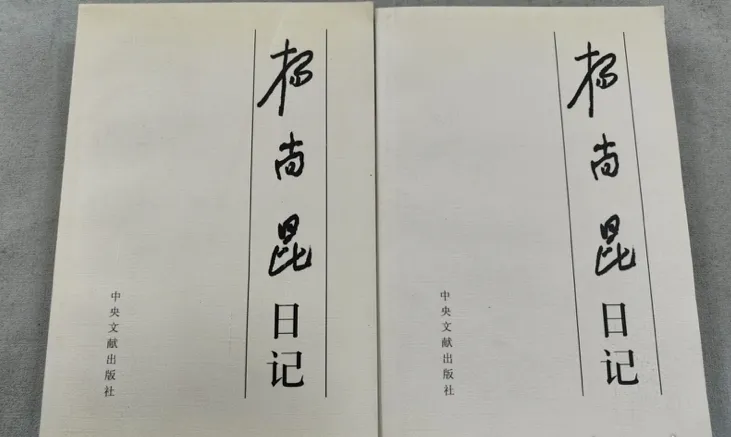 杨尚昆日记
中央文献出版社
杨尚昆日记
中央文献出版社